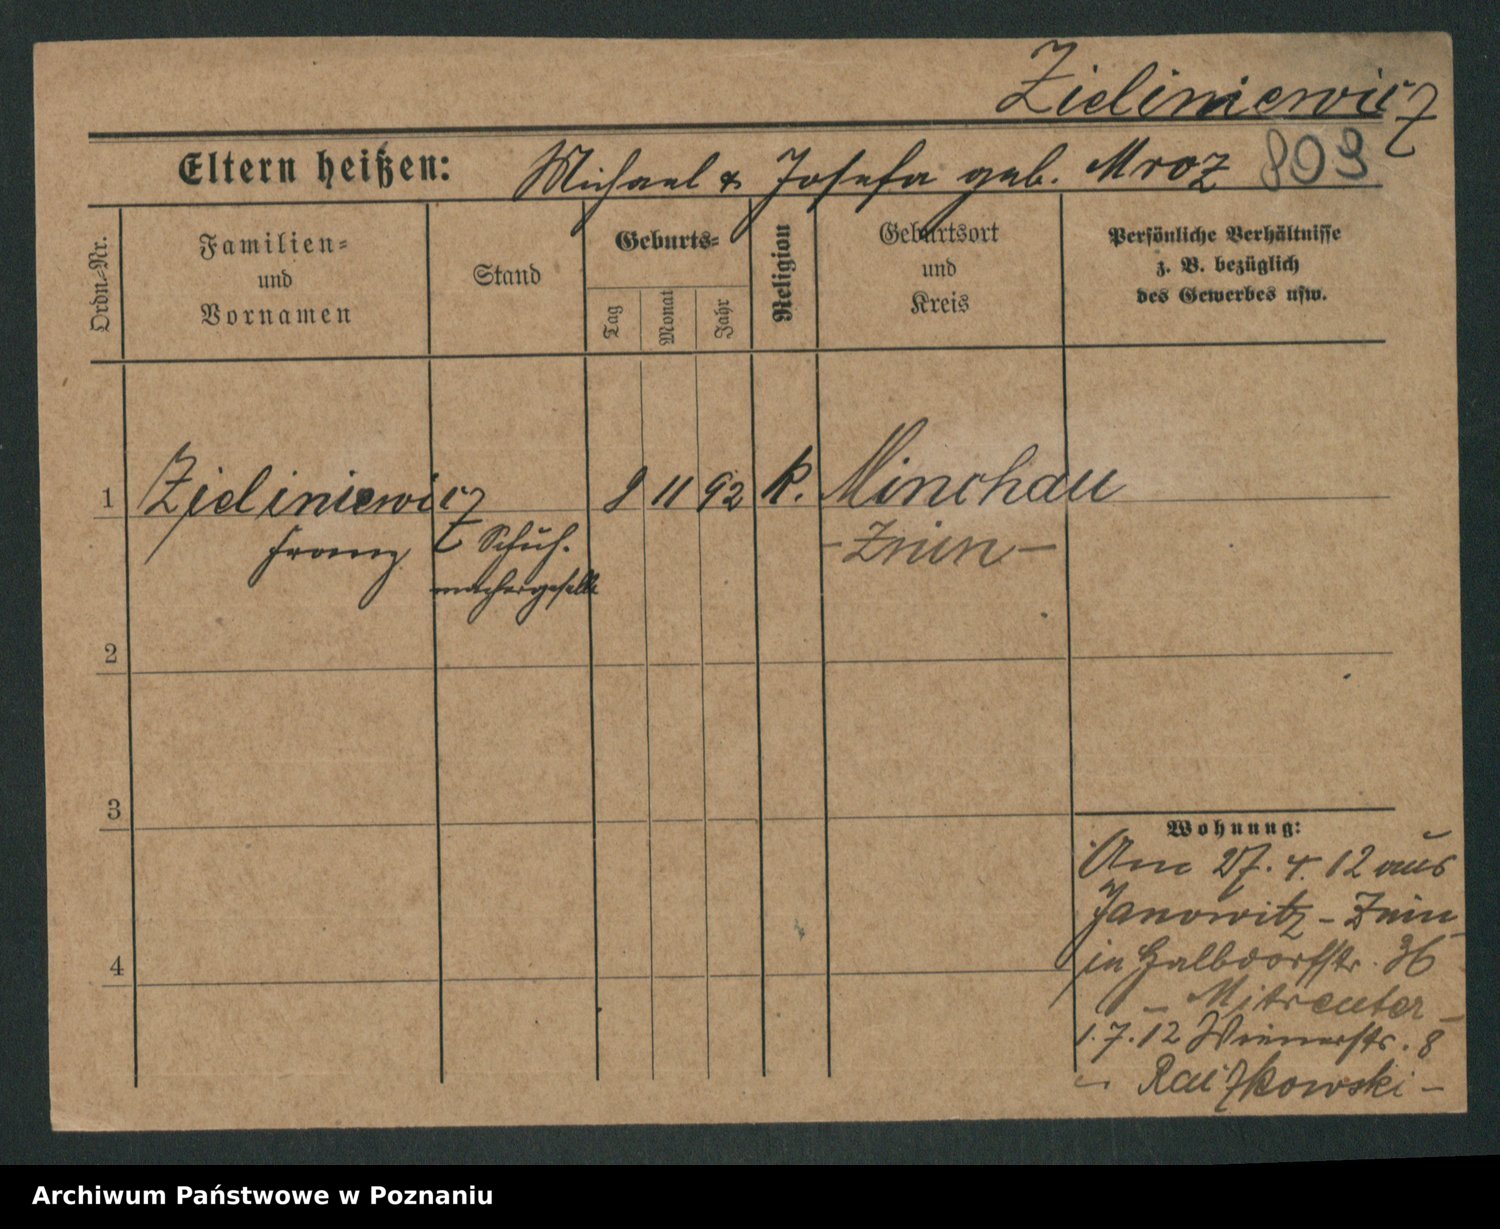 Zieliniewicz
Eltern heißen: Michael & Josefa geb. Mroz 803
Ordn=Nr.
Familien=
und
Vornamen
Stand
Geburts=
Tag
Monat
Jahr
Religion
Geburtsort
und
Kreis
Persönliche Verhältnisse
z. B. bezüglich
des Gewerbes usw.
1 Zieliniewicz 8 11 92 k. Minchau
Franz Schuh- – Znin –
machergeselle
2
3
4
Wohnung:
Am 27. 4. 12 aus
Janowitz – Znin
in Halbdorfstr. 36
1. 7. 12 Wienerstr. 8
– Raczkowski –
Archiwum Państwowe w Poznaniu